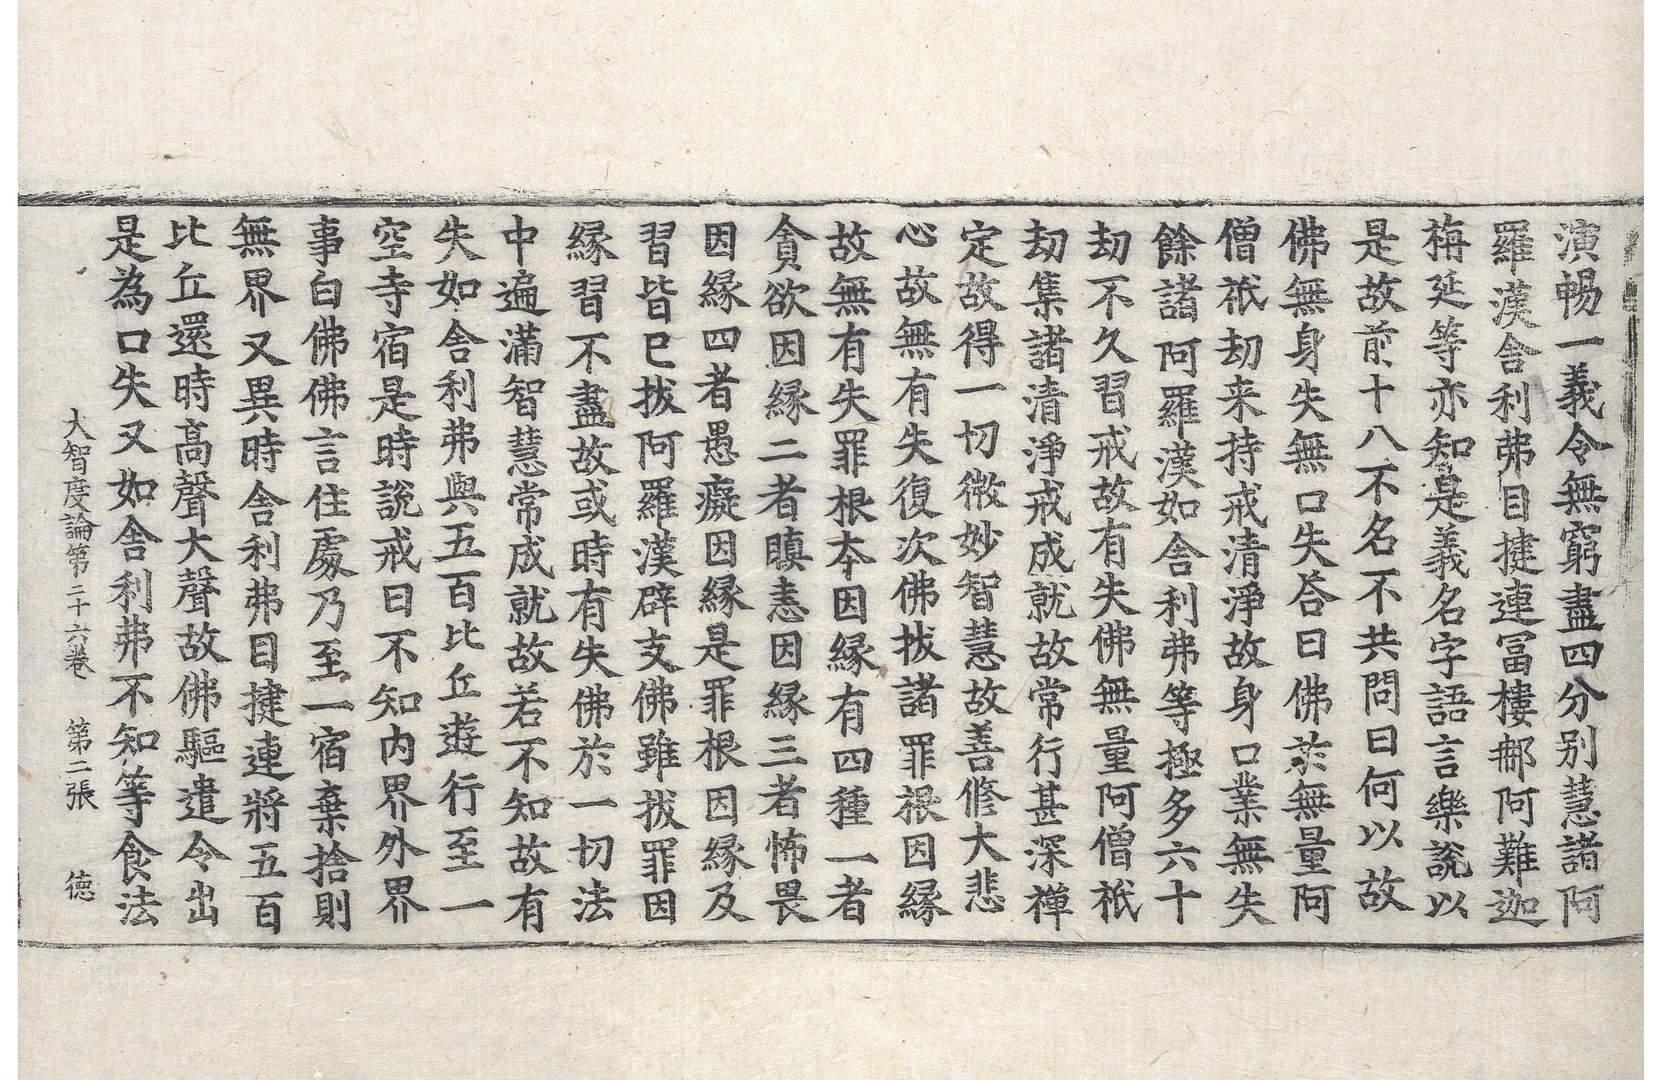 演暢一義令無窮盡四分別慧諸阿
羅漢舍利弗目揵連冨樓那阿難迦
栴延等亦知是義名字語言樂說以
是故前十八不名不共問曰何以故
佛無身失無口失荅曰佛於無量阿
僧祇劫来持戒清淨故身口業無失
餘諸阿羅漢如舍利弗等極多六十
劫不久習戒故有失佛無量阿僧祇
劫集諸清淨戒成就故常行甚深禪
定故得一切微妙智慧故善修大悲
心故無有失復次佛拔諸罪根因緣
故無有失罪根本因緣有四種一者
貪欲因緣二者瞋恚因緣三者怖畏
因緣四者愚癡因緣是罪根因緣及
習皆已拔阿羅漢辟支佛雖拔罪因
緣習不盡故或時有失佛於一切法
中遍滿智慧常成就故若不知故有
失如舍利弗與五百比丘遊行至一
空寺宿是時說戒日不知內界外界
事白佛佛言住處乃至一宿棄捨則
無界又異時舍利弗目揵連將五百
比丘還時高聲大聲故佛驅遣令出
是為口失又如舍利弗不知等食法
大智度論第二十六卷 第二張 徳